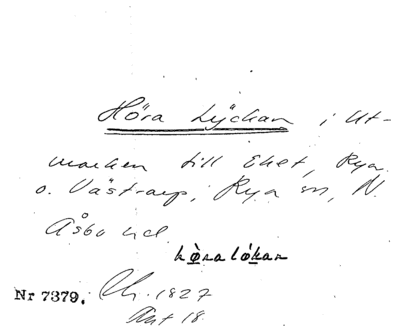 Höra Lyckan i ut-
marken till Eket, Rya
o. Västrarp, Rya sn, N.
Åsbo hd.
ho̱raló̱kan
Nr 7379. Ch. 1827
Akt 18.